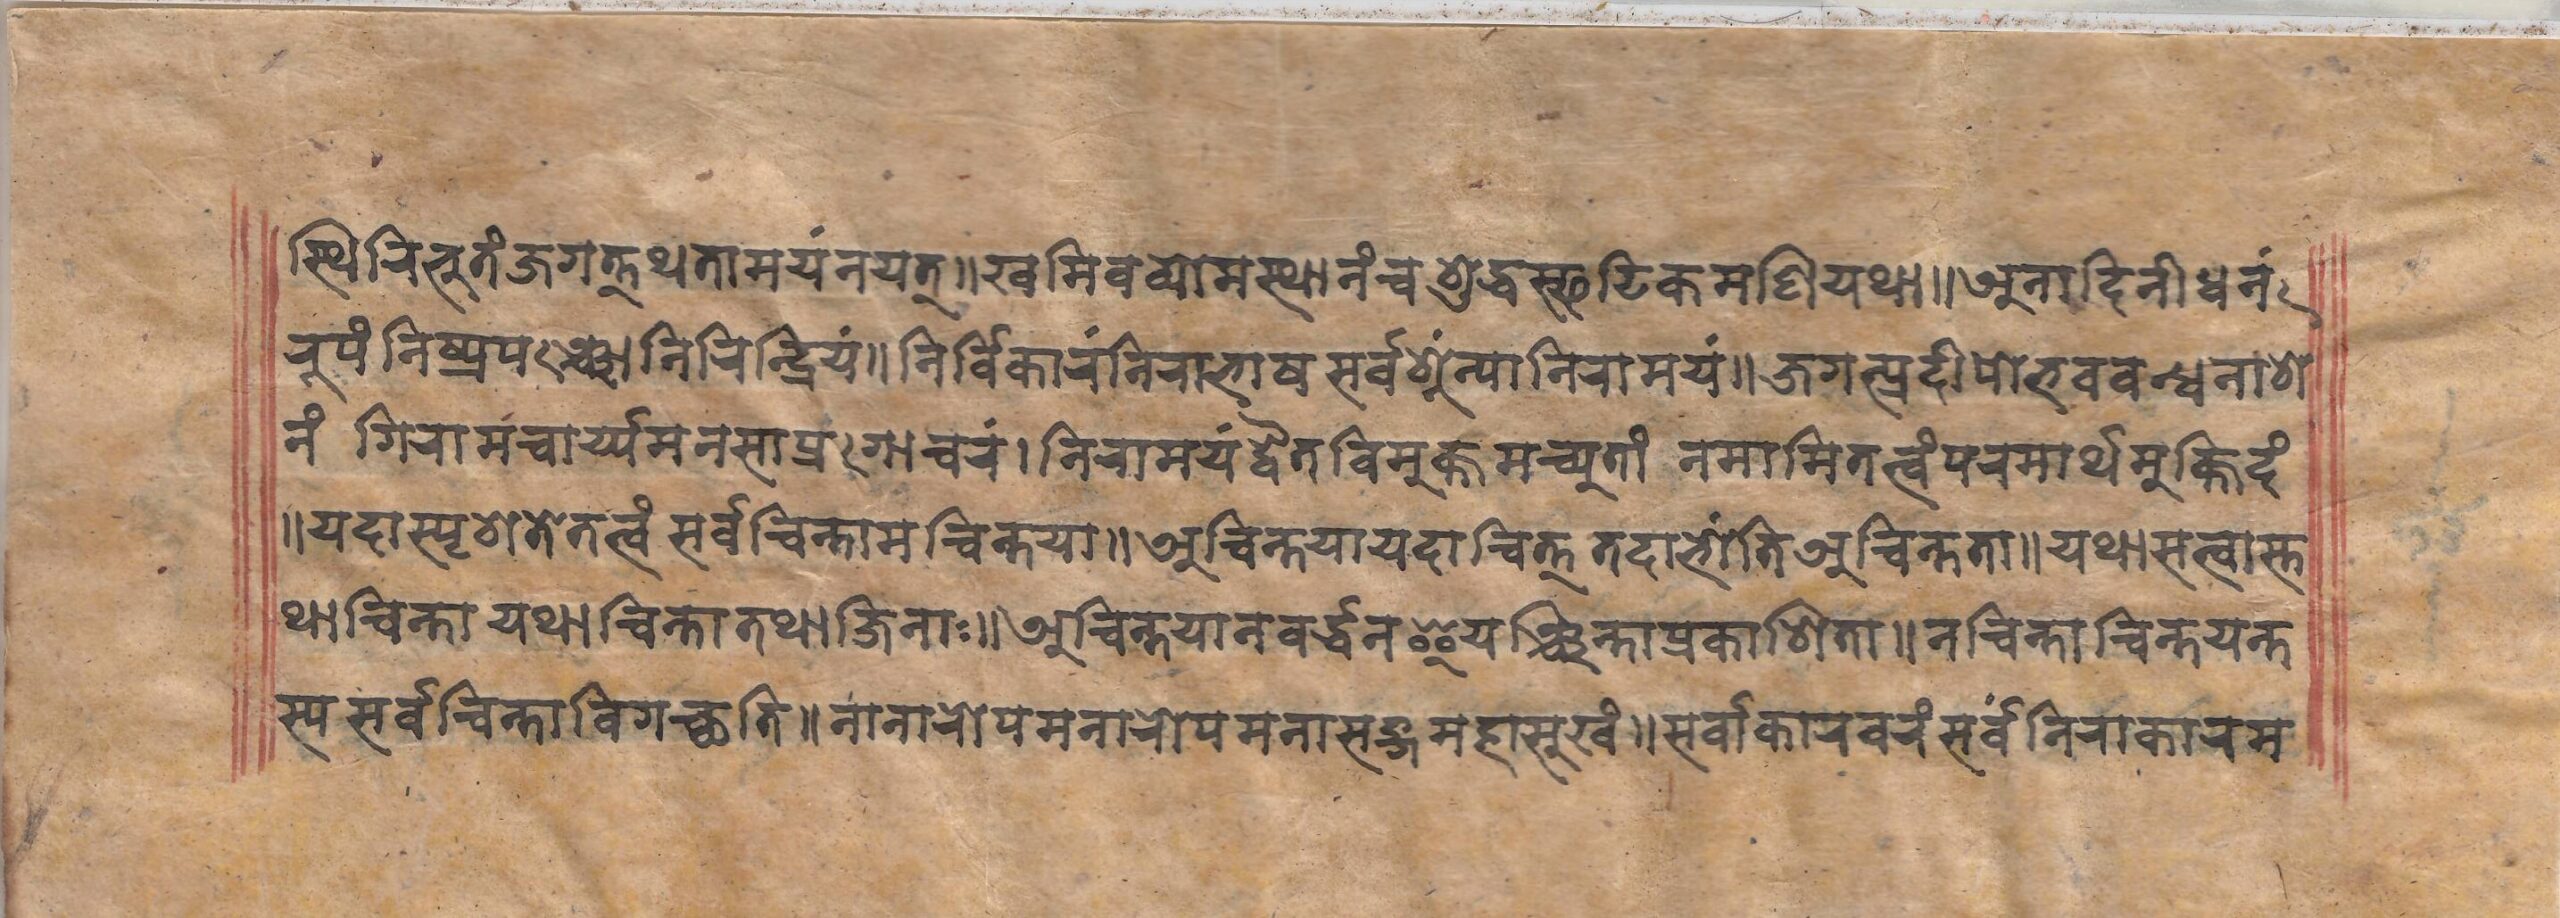 स्थिरिभूतं जगत्तथतामयं नयत् ॥ खमिव व्योमस्थानं च शुद्धस्फटिकमणि यथा ॥ अनादिनीधनं
रूपं निष्प्रपञ्चो निरिन्द्रियं ॥ निर्विकारं निराभाष सर्वशुंन्या निरामयं ॥ जगत्प्रदीपो भवबन्धनाशे
नं गिरामचार्य्यमनसाप्रगोचरं । निरामयं द्वैतविमुक्तमच्युतां नमामि तत्वं परमार्थमुक्तिदं
॥ यदा स्पृशते तत्वं सर्वचिन्तामचिन्तया ॥ अचिन्तया यदा चित्त तदा भोंति अचिन्तता ॥ यथा सत्वास्त
था चिन्ता यथा चिन्ता तथा जिनाः ॥ अचिन्तया नबर्द्धन यञ्चिन्ता प्रकाशिता ॥ न चिन्ता चिन्तयन्त
स्य सर्वचिन्ता विगच्छति ॥ नानारोपमनारोपमनासङ्गमहासूखं ॥ सर्वाकारवरं सर्वं निराकारम